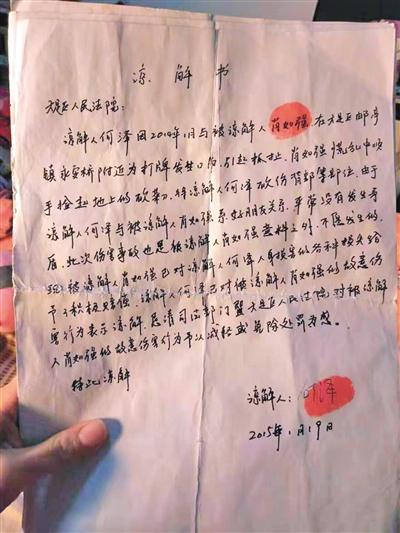 凉解书
大足区人民法院:
凉解人何泽因2014年1月与被凉解人肖如强在大足区邮亭
镇永宝桥附近为打牌发生口角,引起抓扯,肖如强慌乱中顺
手捡起地上的砍菜刀,将凉解人何泽砍伤背部等部位,由于
凉解人何泽与被凉解人肖如强系好朋友关系,平常没有发生矛
盾,此次伤害事故也是被凉解人肖如强意料之外,不愿发生的,
现被凉解人肖如强已对凉解人何泽人身损害的各种损失给
予了积极赔偿,凉解人何泽已对被凉解人肖如强的故意伤
害行为表示凉解,恳请司法部门暨大足区人民法院对被凉解
人肖如强的故意伤害行为予以减轻或免除处罚为感。
特此凉解
凉解人:何泽
2015年1月19日